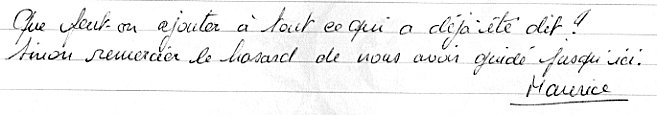 Que peut-on ajouter à tout ce qui a déjà été dit ?
Sinon remercier le hasard de nous avoir guidé jusqu'ici.
Maurice